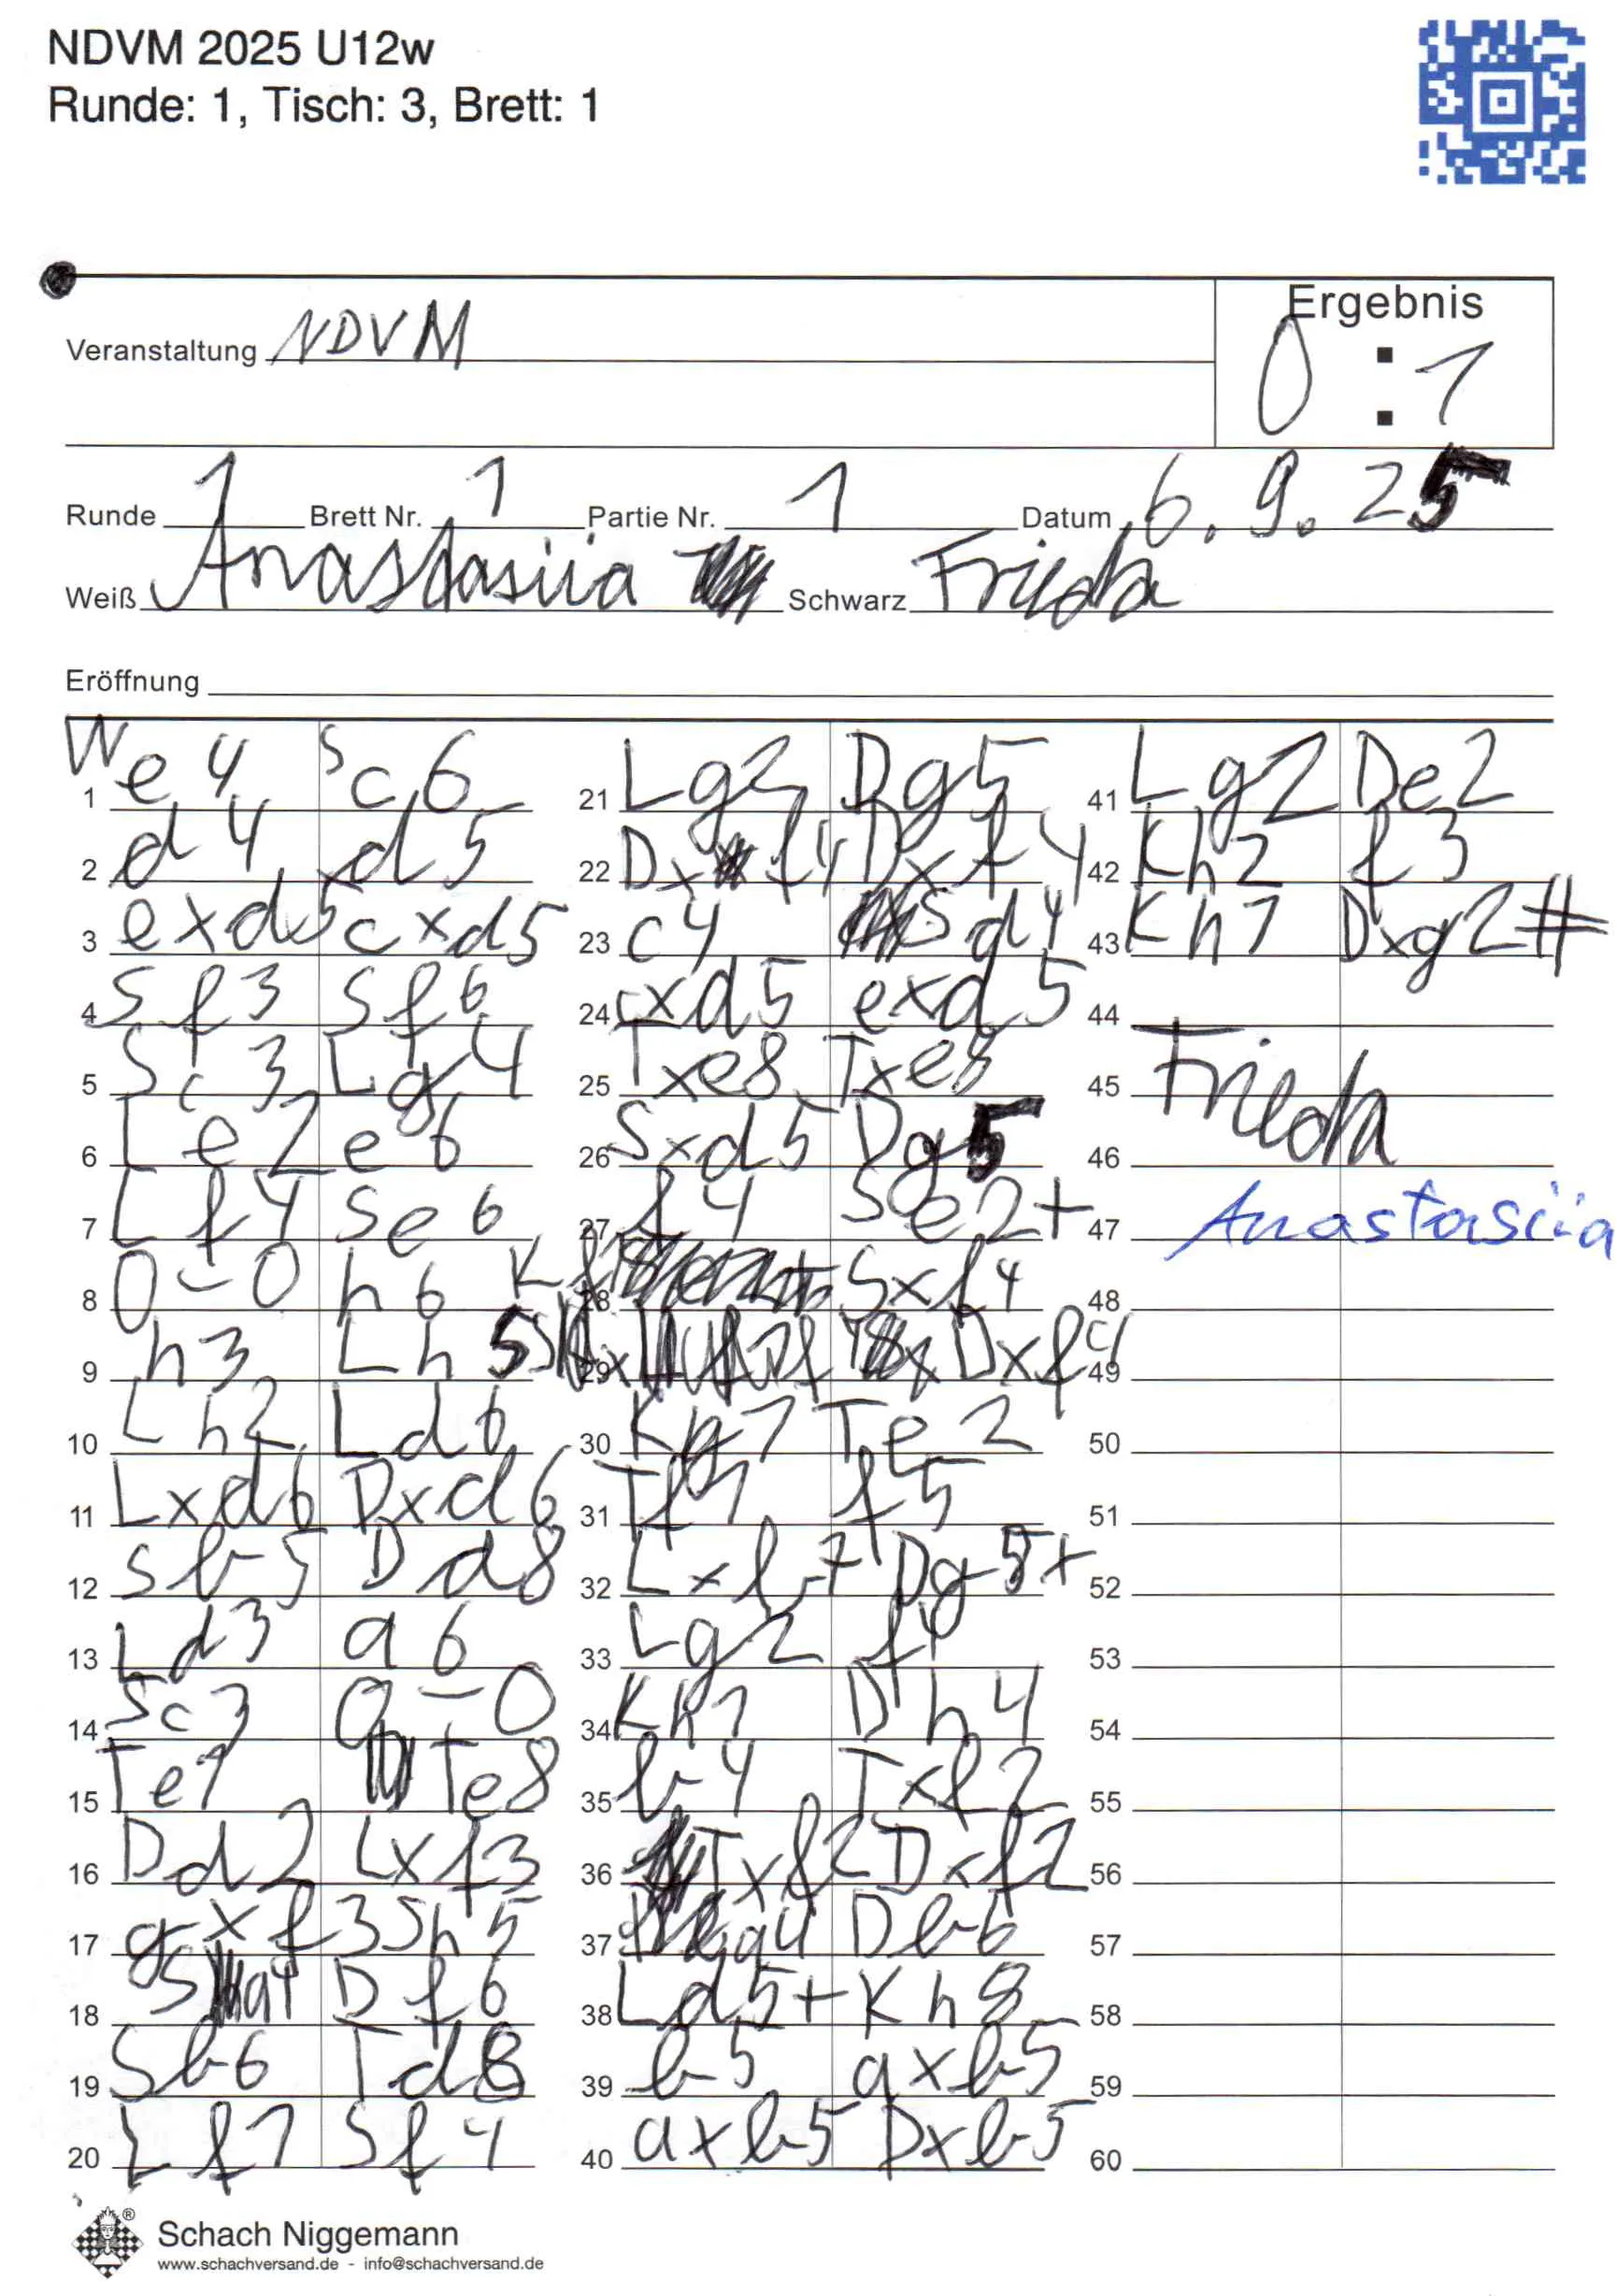 NDVM 2025 U12w
Runde: 1, Tisch: 3, Brett: 1
Ergebnis
Veranstaltung NDVM
0 : 1
Runde 1 Brett Nr. 1 Partie Nr. 1 Datum 6.9.25
Weiß Anastasiia Schwarz Frieda
Eröffnung
W S
1 e4 c6
2 d4 d5
3 exd5 cxd5
4 Sf3 Sf6
5 Sc3 Lg4
6 Le2 e6
7 Lf4 Sc6
8 0-0 h6
9 h3 Lh5
10 Lh2 Ld6
11 Lxd6 Dxd6
12 Sb5 Dd8
13 Ld3 a6
14 Sc3 0-0
15 Te1 Te8
16 Dd2 Lxf3
17 gxf3 Sh5
18 Sa4 Df6
19 Sb6 Td8
20 Lf1 Sf4
21 Lg2 Dg5
22 Dxf4 Dxf4
23 c4 Sd4
24 cxd5 exd5
25 Txe8 Txe8
26 Sxd5 Dg5
27 f4 Se2+
28 Kf1 Sxf4
29 Sxf4 Dxf4
30 Kg1 Te2
31 Tf1 f5
32 Lxb7 Dg5+
33 Lg2 f4
34 Kh1 Dh4
35 b4 Txf2
36 Txf2 Dxf2
37 a4 Db6
38 Ld5+ Kh8
39 b5 axb5
40 axb5 Dxb5
41 Lg2 De2
42 Kh2 f3
43 Kh1 Dxg2#
44
45 Frieda
46
47 Anastasiia
48
49
50
51
52
53
54
55
56
57
58
59
60
Schach Niggemann
www.schachversand.de - info@schachversand.de